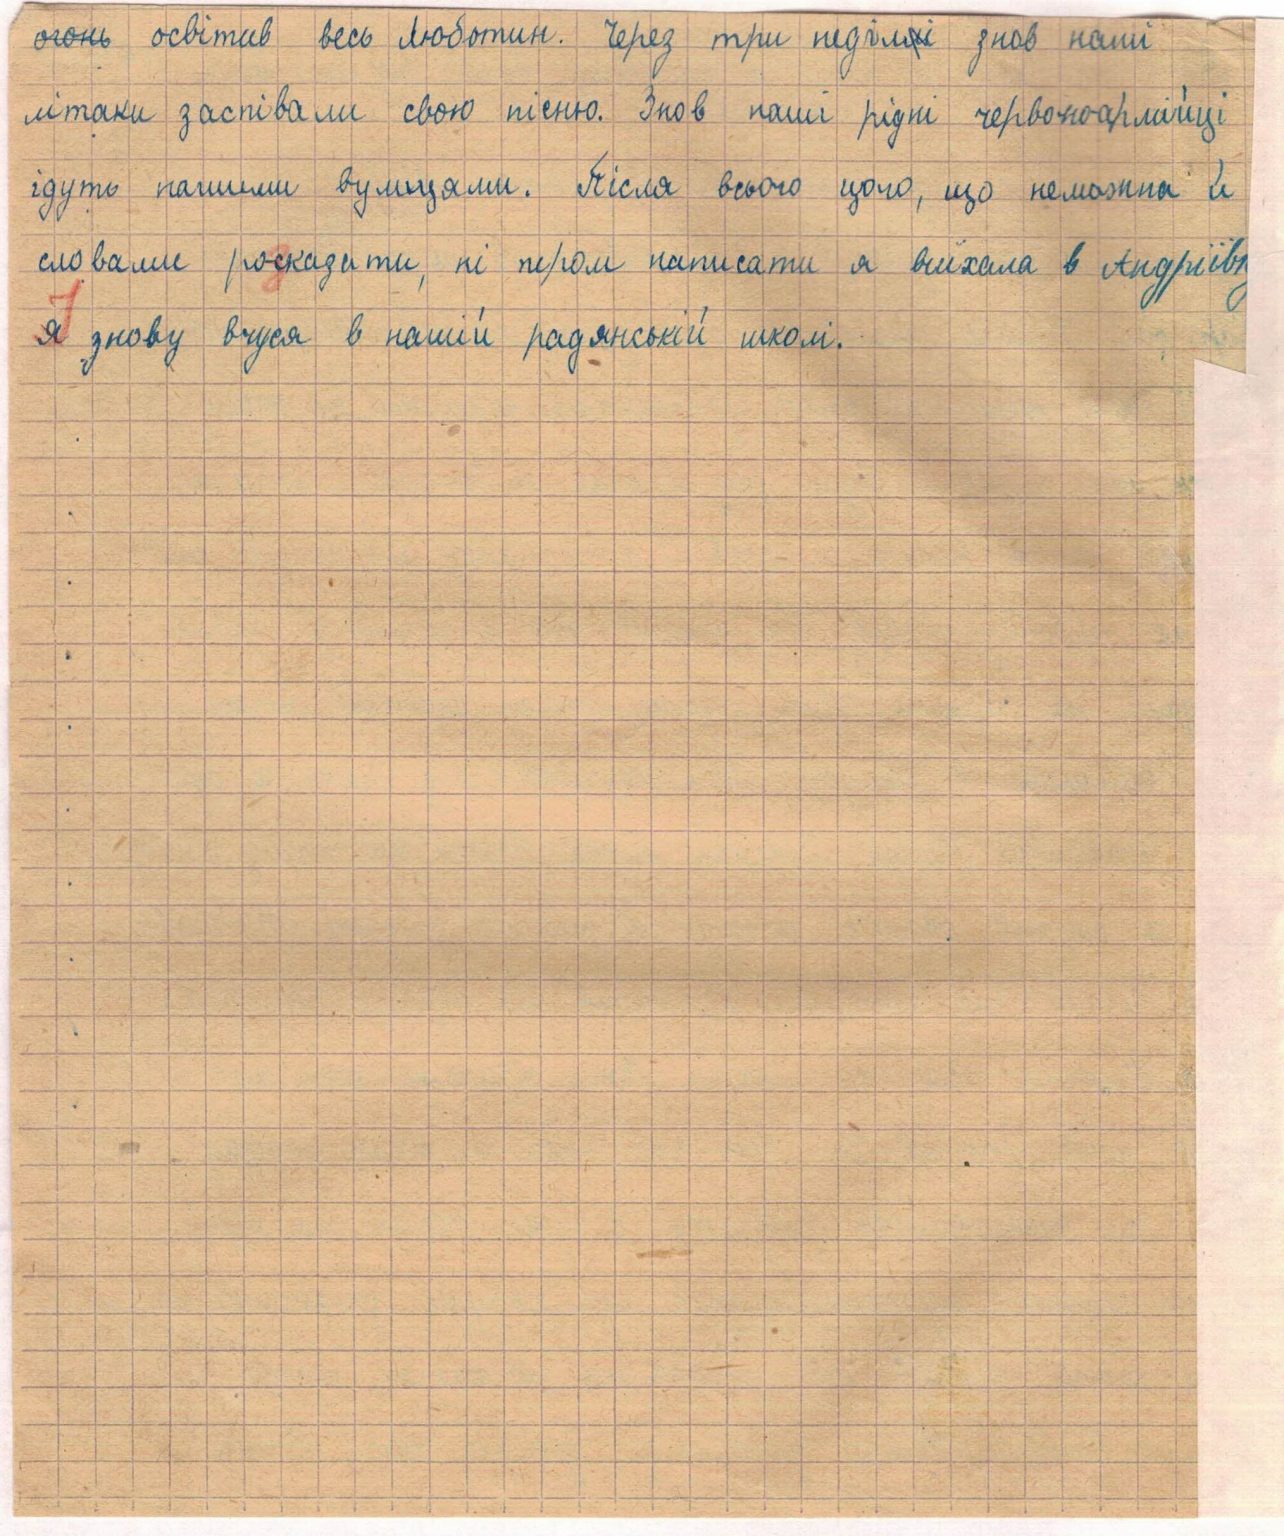 огонь освітив весь Люботин. Через три неділі знов наші
літаки заспівали свою пісню. Знов наші рідні червоноармійці
ідуть нашими вулицями. Після всього цого, що неможна й
словами росказати, ні пером написати я виїхала в Андріївку
Я знову вчуся в нашій радянській школі.